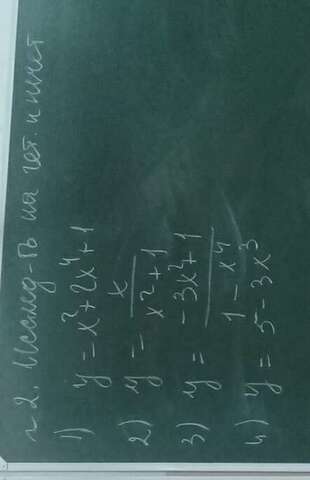 №2. Исслед-ть на чет. и нечет
1) y = x² + 2x⁴ + 1
2) y = x / (x² + 1)
3) y = (-3x² + 1) / (1 - x⁴)
4) y = 5 - 3x³